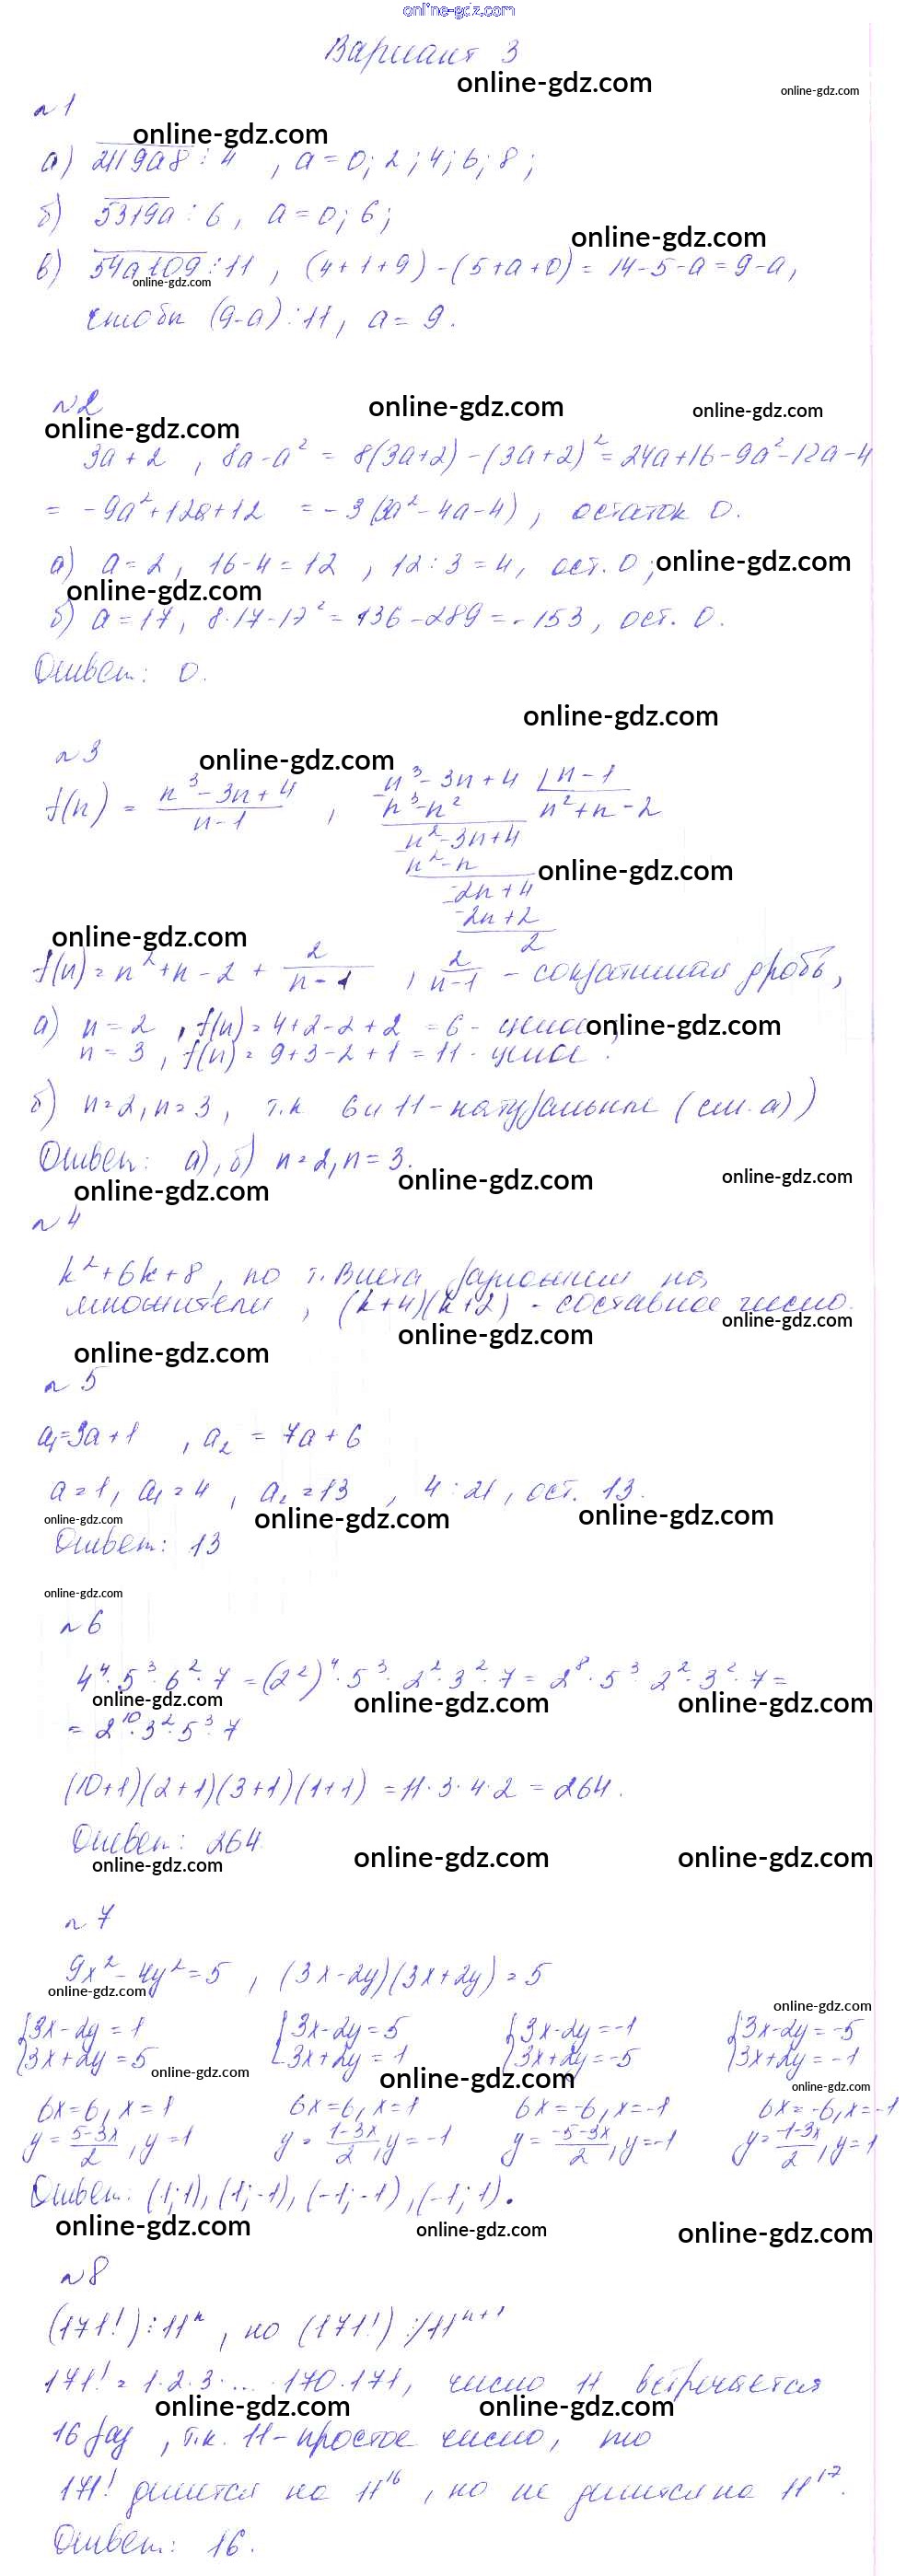 online-gdz.com
Вариант 3
online-gdz.com
online-gdz.com
№1
online-gdz.com
а) 2119a8 ⋮ 4 , a = 0; 2; 4; 6; 8;
б) 5319a ⋮ 6, a = 0; 6;
online-gdz.com
в) 54a109 ⋮ 11, (4+1+9) - (5+a+0) = 14-5-a = 9-a,
online-gdz.com
чтобы (9-a) ⋮ 11, a = 9.
№2
online-gdz.com
online-gdz.com
online-gdz.com
3a + 2 , 8a - a² = 8(3a+2) - (3a+2)² = 24a+16-9a²-12a-4
= -9a²+12a+12 = -3(3a²-4a-4), остаток 0.
а) a = 2, 16-4 = 12 , 12 : 3 = 4, ост. 0;
online-gdz.com
online-gdz.com
б) a = 17, 8·17-17² = 136-289 = -153, ост. 0.
Ответ: 0.
online-gdz.com
№3
online-gdz.com
f(n) = (n³-3n+4)/(n-1) ,
n³-3n+4 | n-1
n³-n² n²+n-2
n²-3n+4
n²-n
online-gdz.com
-2n+4
-2n+2
2
online-gdz.com
f(n) = n²+n-2 + 2/(n-1) , 2/(n-1) - сократимая дробь,
а) n = 2 , f(n) = 4+2-2+2 = 6 - целое
online-gdz.com
n = 3 , f(n) = 9+3-2+1 = 11 - целое.
б) n=2, n=3, т.к. 6 и 11 - натуральные (см. а))
Ответ: а), б) n=2, n=3.
online-gdz.com
online-gdz.com
online-gdz.com
№4
k²+6k+8, по т. Виета разложим на
множители, (k+4)(k+2) - составное число.
online-gdz.com
online-gdz.com
online-gdz.com
№5
a₁=3a+1 , a₂ = 7a+6
a=1, a₁=4, a₂=13 , 4 : 21, ост. 13.
online-gdz.com
online-gdz.com
online-gdz.com
Ответ: 13
online-gdz.com
№6
4⁴·5³·6²·7 = (2²)⁴·5³·2²·3²·7 = 2⁸·5³·2²·3²·7 =
online-gdz.com
online-gdz.com
online-gdz.com
= 2¹⁰·3²·5³·7
(10+1)(2+1)(3+1)(1+1) = 11·3·4·2 = 264.
Ответ: 264.
online-gdz.com
online-gdz.com
online-gdz.com
№7
9x²-4y²=5 , (3x-2y)(3x+2y)=5
online-gdz.com
online-gdz.com
{3x-2y=1 {3x-2y=5 {3x-2y=-1 {3x-2y=-5
{3x+2y=5 {3x+2y=1 {3x+2y=-5 {3x+2y=-1
online-gdz.com
online-gdz.com
online-gdz.com
6x=6, x=1 6x=6, x=1 6x=-6, x=-1 6x=-6, x=-1
y=(5-3x)/2, y=1 y=(1-3x)/2, y=-1 y=(-5-3x)/2, y=-1 y=(-1-3x)/2, y=1
Ответ: (1;1), (1;-1), (-1;-1), (-1;1).
online-gdz.com
online-gdz.com
online-gdz.com
№8
(171!) ⋮ 11ⁿ, но (171!) ⋮̸ 11ⁿ⁺¹
171! = 1·2·3·...·170·171, число 11 встречается
online-gdz.com
online-gdz.com
16 раз, т.к. 11 - простое число, то
171! делится на 11¹⁶, но не делится на 11¹⁷.
Ответ: 16.